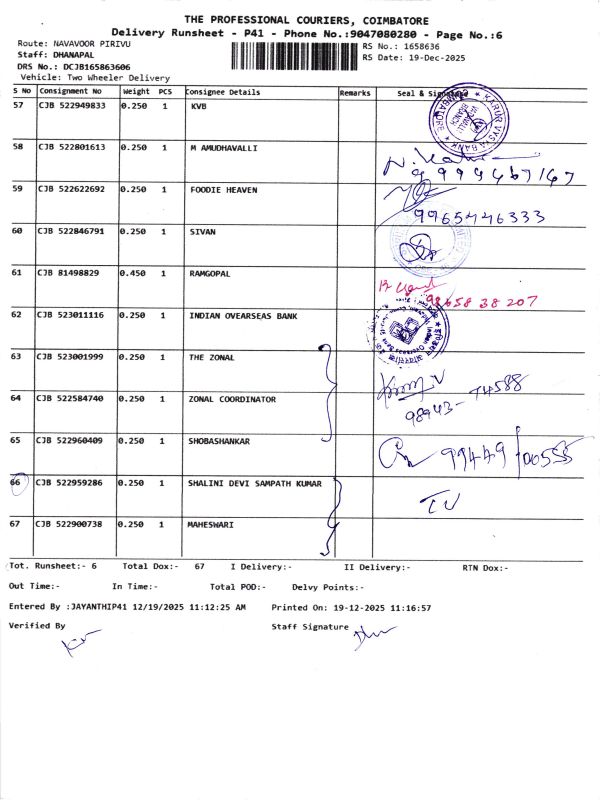 THE PROFESSIONAL COURIERS, COIMBATORE
Delivery Runsheet - P41 - Phone No.:9047080280 - Page No.:6
Route: NAVAVOOR PIRIVU
Staff: DHANAPAL
DRS No.: DCJB165863606
Vehicle: Two Wheeler Delivery
RS No.: 1658636
RS Date: 19-Dec-2025
S No Consignment No Weight PCS Consignee Details Remarks Seal & Signature
57 CJB 522949833 0.250 1 KVB
★ KARUR VYSYA BANK ★ COIMBATORE
VADAVALLI BRANCH
58 CJB 522801613 0.250 1 M AMUDHAVALLI
9999467167
59 CJB 522622692 0.250 1 FOODIE HEAVEN
9965446333
60 CJB 522846791 0.250 1 SIVAN
61 CJB 81498829 0.450 1 RAMGOPAL
98658 38 207
62 CJB 523011116 0.250 1 INDIAN OVERSEAS BANK
Indian Overseas Bank
63 CJB 523001999 0.250 1 THE ZONAL
64 CJB 522584740 0.250 1 ZONAL COORDINATOR
98943- 74588
65 CJB 522960409 0.250 1 SHOBASHANKAR
99449 00555
66 CJB 522959286 0.250 1 SHALINI DEVI SAMPATH KUMAR
67 CJB 522900738 0.250 1 MAHESWARI
Tot. Runsheet:- 6 Total Dox:- 67 I Delivery:- II Delivery:- RTN Dox:-
Out Time:- In Time:- Total POD:- Delvy Points:-
Entered By :JAYANTHIP41 12/19/2025 11:12:25 AM Printed On: 19-12-2025 11:16:57
Verified By Staff Signature